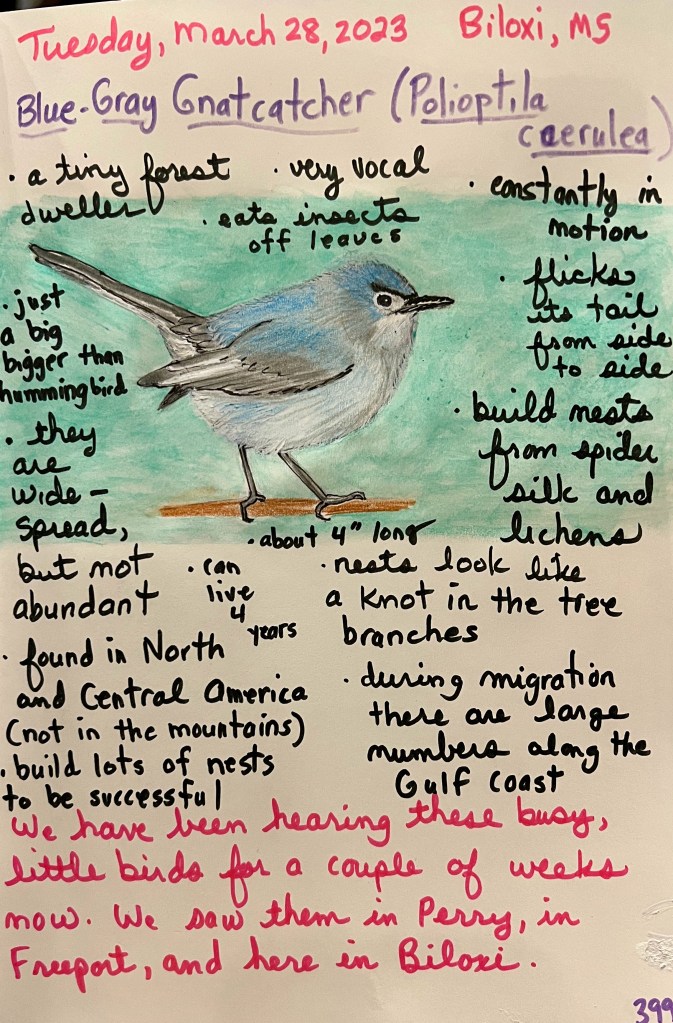 Tuesday, March 28, 2023 Biloxi, MS
Blue-Gray Gnatcatcher (Polioptila
caerulea)
• a tiny forest
dweller
• very vocal
• eats insects
off leaves
• constantly in
motion
• flicks
its tail
from side
to side
• build nests
from spider
silk and
lichens
• just
a big
bigger than
hummingbird
• they
are
wide-
spread,
but not
abundant
• about 4" long
• can
live
4
years
• nests look like
a knot in the tree
branches
• found in North
and Central America
(not in the mountains)
• build lots of nests
to be successful
• during migration
there are large
numbers along the
Gulf Coast
We have been hearing these busy,
little birds for a couple of weeks
now. We saw them in Perry, in
Freeport, and here in Biloxi.
399